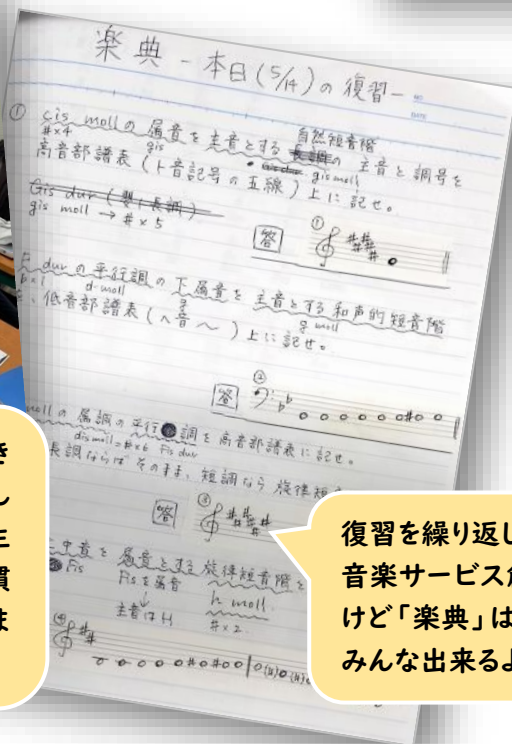 楽典 - 本日(5/14)の復習 -
NO
DATE
① cis mollの属音を主音とする 自然短音階 の 主音と調号を
#×4 gis gis moll
高音部譜表(ト音記号の五線)上に記せ。
Gis dur (嬰ト長調)
gis moll → #×5
答 ①
F dur の平行調の下属音を主音とする和声的短音階
b×1 d moll g g moll
低音部譜表(ヘ音〜)上に記せ。
答 ②
mollの属調の平行 調を高音部譜表に記せ。
dis moll = #×6 Fis dur
長調ならばそのまま、短調なら旋律短
答 ③
中音を属音とする旋律短音階を
Fis Fisを属音 h moll
↓
主音はH #×2
④
き
し
慣
ま
復習を繰り返し
音楽サービス
けど「楽典」は
みんな出来るよ